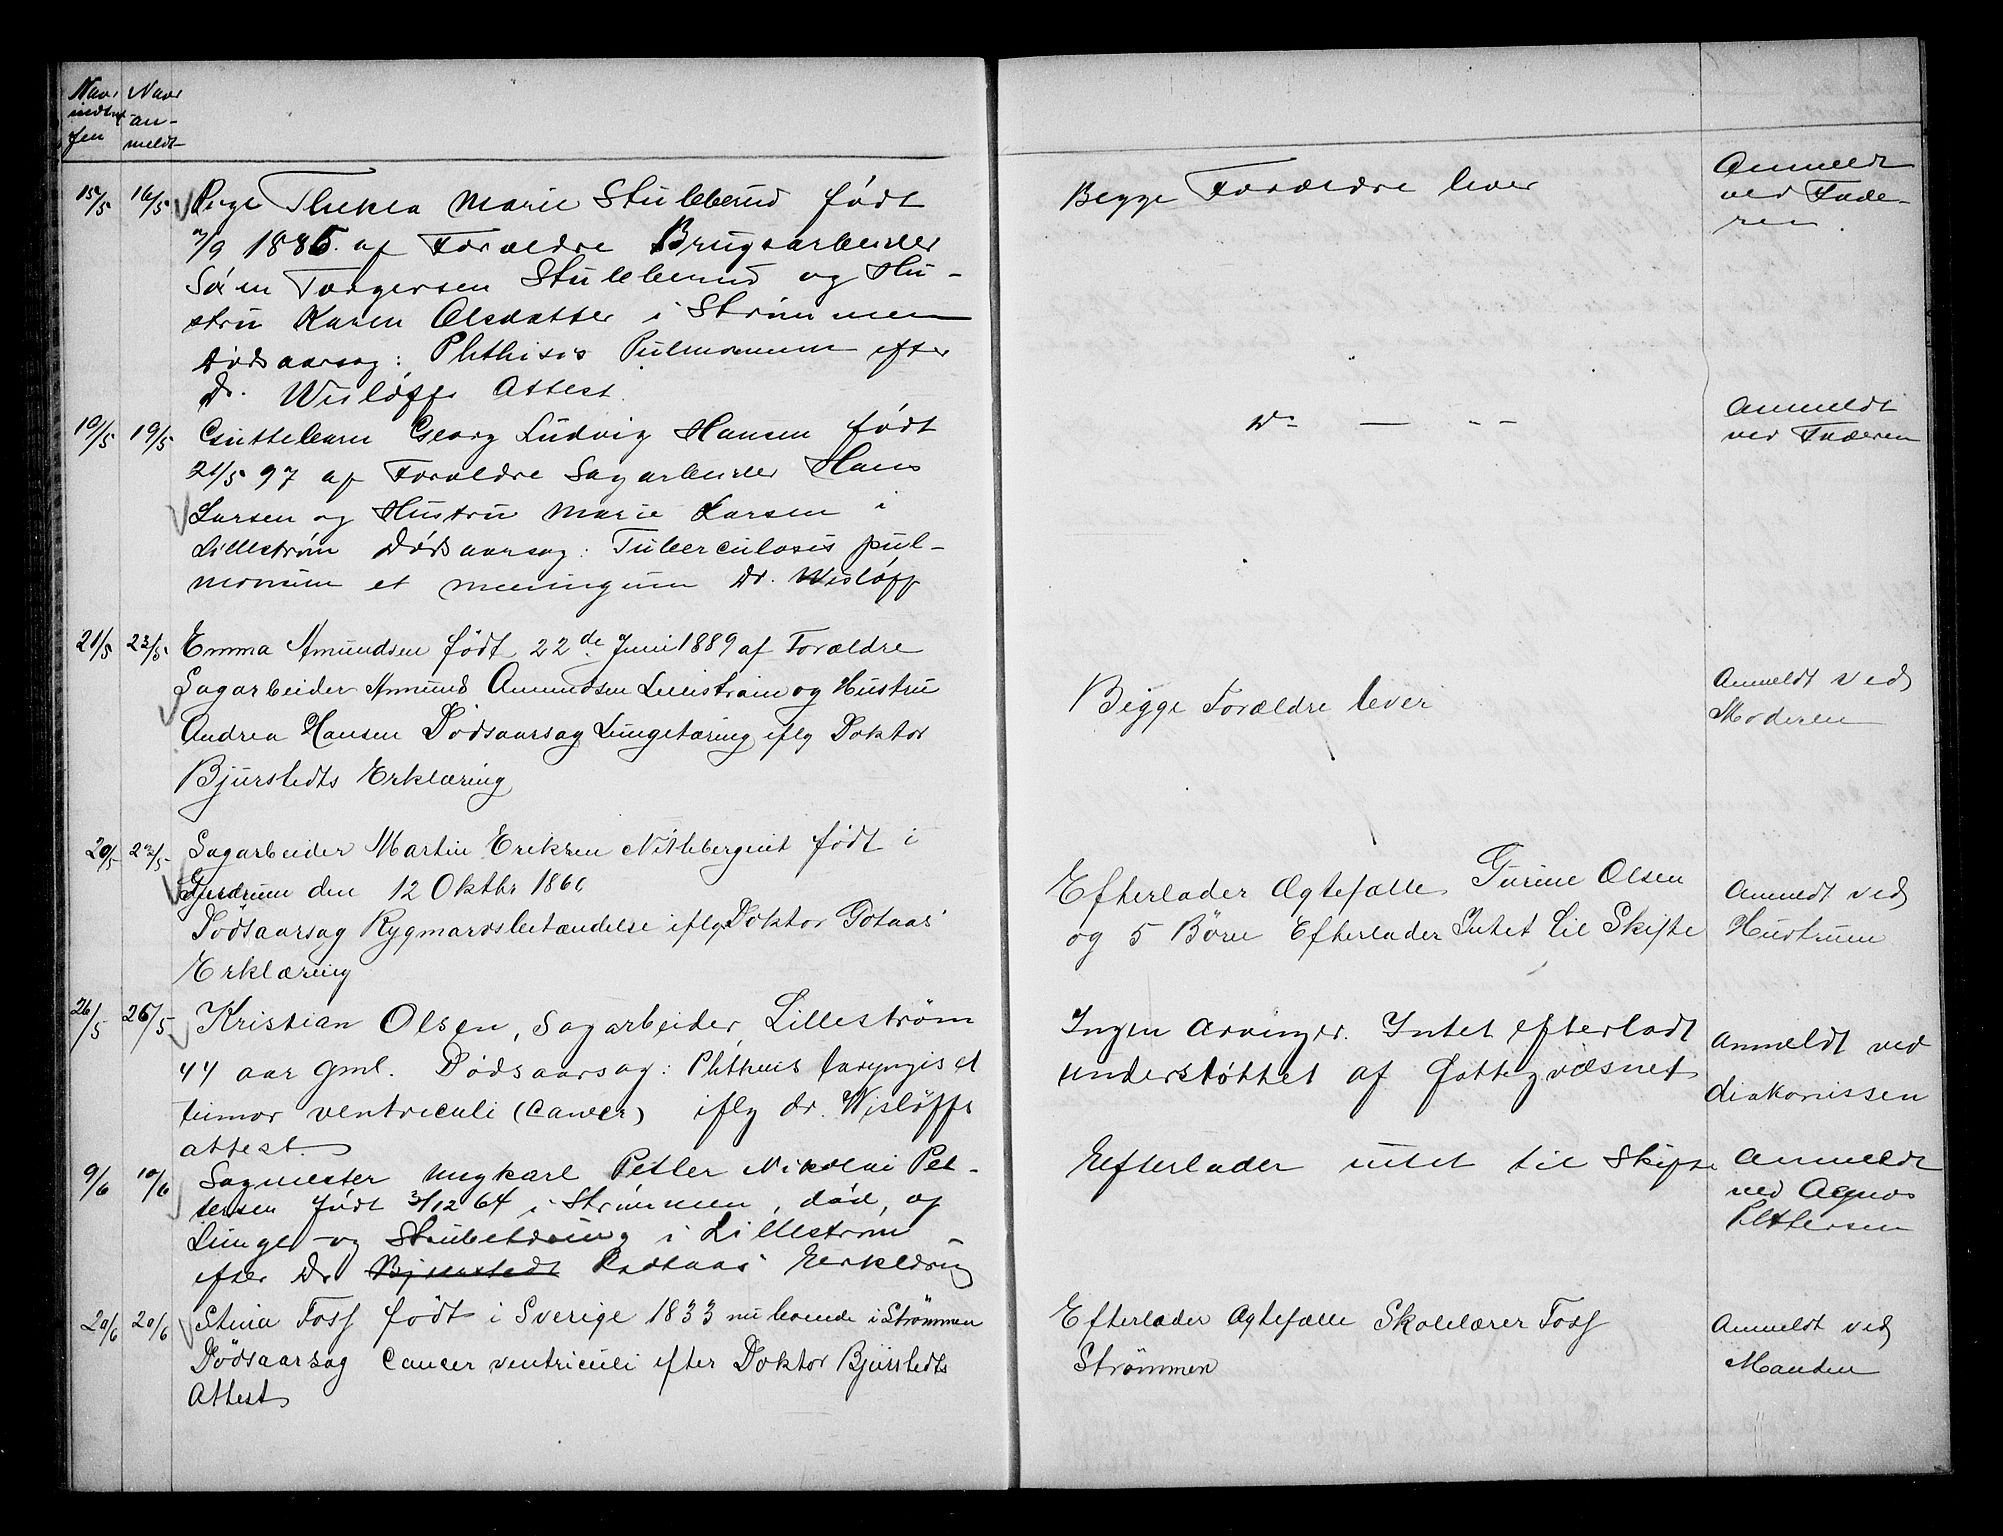 Naar indtruffen
Naar anmeldt
15/5 16/5 Pige Thekla Marie Stulleberud født
7/9 1885 af Forældre Brugsarbeider
Søren Torgersen Stulleberud og Hu-
stru Karen Olsdatter i Strømmen
Dødsaarsag: Phthisis Pulmonum efter
Dr. Wisløffs Attest.
Begge Forældre lever
Anmeldt
ved Fade-
ren.
19/5 19/5 Guttebarn Georg Ludvig Hansen født
21/5 97 af Forældre Sagarbeider Hans
Larsen og Hustru Marie Larsen i
Lillestrøm Dødsaarsag: Tuberculosis pul-
monum et meningum Dr. Wisløff
Do — - -
Anmeldt
ved Faderen
21/5 23/5 Emma Amundsen født 22de Juni 1889 af Forældre
Sagarbeider Amund Amundsen Lillestrøm og Hustru
Andrea Hansen Dødsaarsag Lungetæring iflg Doktor
Bjurstedts Erklæring
Begge Forældre lever
Anmeldt ved
Moderen
20/5 23/5 Sagarbeider Martin Eriksen født i
Gjerdrum den 12 Oktbr 1866
Dødsaarsag Rygmarvsbetændelse iflg Doktor Gotaas'
Erklæring
Efterlader Ægtefælle Turine Olsen
og 5 Børn Efterlader Intet til Skifte
Anmeldt ved
Hustruen
26/5 26/5 Kristian Olsen, Sagarbeider, Lillestrøm
44 aar gml. Dødsaarsag: Phthisis laryngis et
tumor ventriculi (cancer) iflg dr. Wisløffs
attest.
Ingen arvinger. Intet efterladt
understøttet af fattigvæsnet
anmeldt ved
diakonissen
9/6 10/6 Sagmester ungkarl Petter Nikolai Pet-
tersen født 3/12 64 i Strømmen, død, af
Lunge- og Strubetæring i Lillestrøm
efter Dr Bjurstedt Erklæring
Efterlader intet til Skifte
Anmeldt
ved Agnes
Pettersen
20/6 20/6 Stina Foss født i Sverige 1833 nu boende i Strømmen
Dødsaarsag Cancer ventriculi efter Doktor Bjurstedts
Attest
Efterlader Ægtefælle Skolelærer Foss
Strømmen
Anmeldt ved
Manden